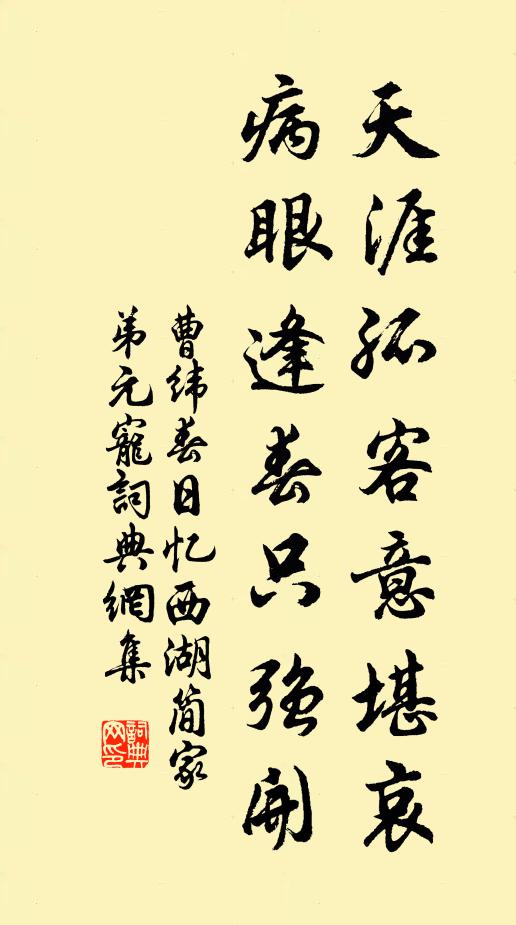 天涯孤客意堪哀
病眼逢春只強開
曹緯春日忆西湖簡家
弟元寵詞典網集
詞典
网印